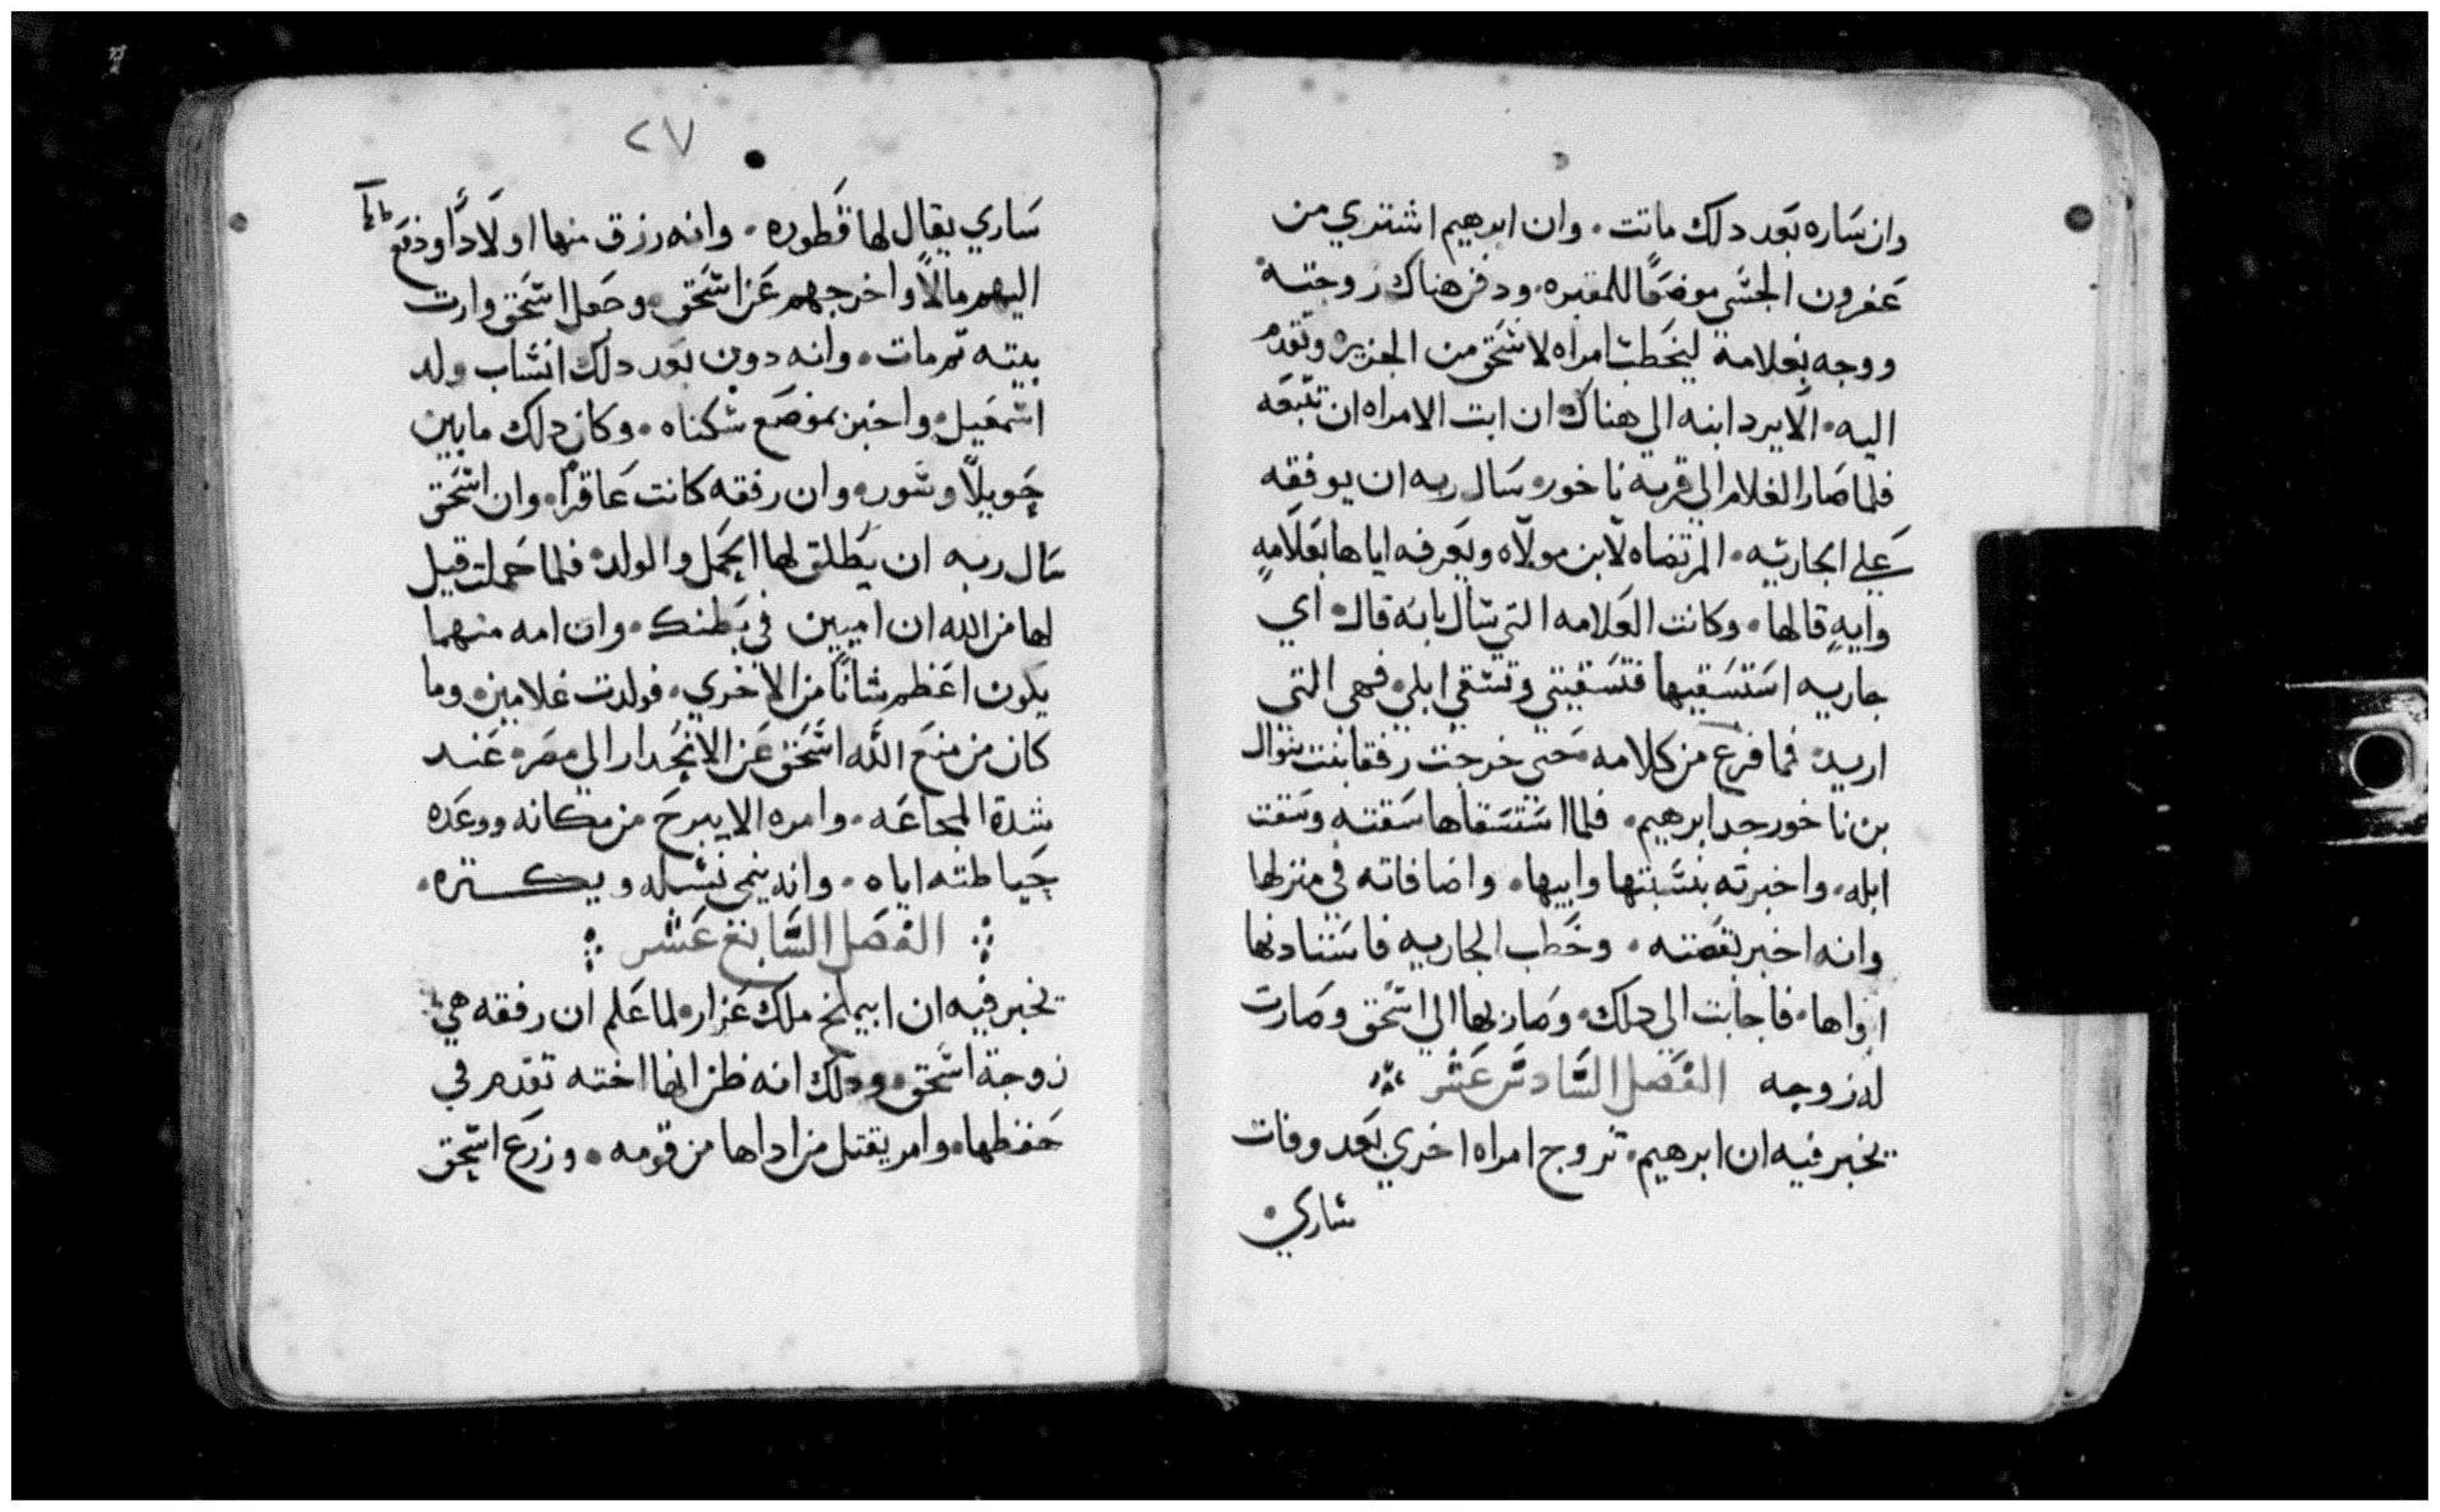 وان ساره بعد دلك ماتت. وان ابرهيم اشتري من
عفرون الجشي موضعًا للمقبره. ودفن هناك زوجته
ووجه بغلامة ليخطب امراه لاسحق من الجزيره وتقدم
اليه. الا يرد ابنه الي هناك ان ابت الامراه ان تتبعه
فلما صار الغلام الي قريه ناخور. سال ربه ان يوفقه
علي الجاريه. المرتضاه لابن مولاه ويعرفه اياها بعلامهٍ
وايهٍ قالها. وكانت العلامه التي سال بانه قال. اي
جاريه استسقيها فتسقيني وتسقي ابلي. فهي التي
اريد. فما فرغ من كلامه. حتي خرجت رفقا بنت بتوال
بن ناخور جد ابرهيم. فلما استسقاها سقته وسقت
ابله. واخبرته بنسبتها وابيها. واضافاته في منزلها
وانه اخبر بقصته. وخطب الجاريه فاستادنها
ابواها. فاجابت الي دلك. وصار بها الي اسحق وصارت
له زوجه الفصل السادس عشر
يخبر فيه ان ابرهيم. تزوج امراه اخري بعد وفات
ساري.
٢٧
ساري يقال لها قطوره. وانه رزق منها اولادًا ودفع
اليهم مالًا واخرجهم عن اسحق. وجعل اسحق وارت
بيته تم مات. وانه دون بعد دلك انساب ولد
اسمعيل. واخبر بموضع سكناه. وكان دلك مابين
حويلا وسور. وان رفقه كانت عاقرًا. وان اسحق
سال ربه ان يطلق لها الحمل والولد. فلما حملت قيل
لها من الله ان اميين في بطنك. وان امه منهما
يكون اعظم شانًا من الاخري. فولدت غلامين. وما
كان من منع الله اسحق عن الانحدار الي مصر. عند
شدة المجاعه. وامره الا يبرح من مكانه ووعده
حياطته اياه. وانه ينمي نسله ويكتره.
الفصل السابع عشر
يخبر فيه ان ابيمالخ ملك عزار. لما علم ان رفقه هي
زوجة اسحق. ودلك انه ظن انها اخته تقدم في
حفظها. وامر بقتل من اداها من قومه. وزرع اسحق